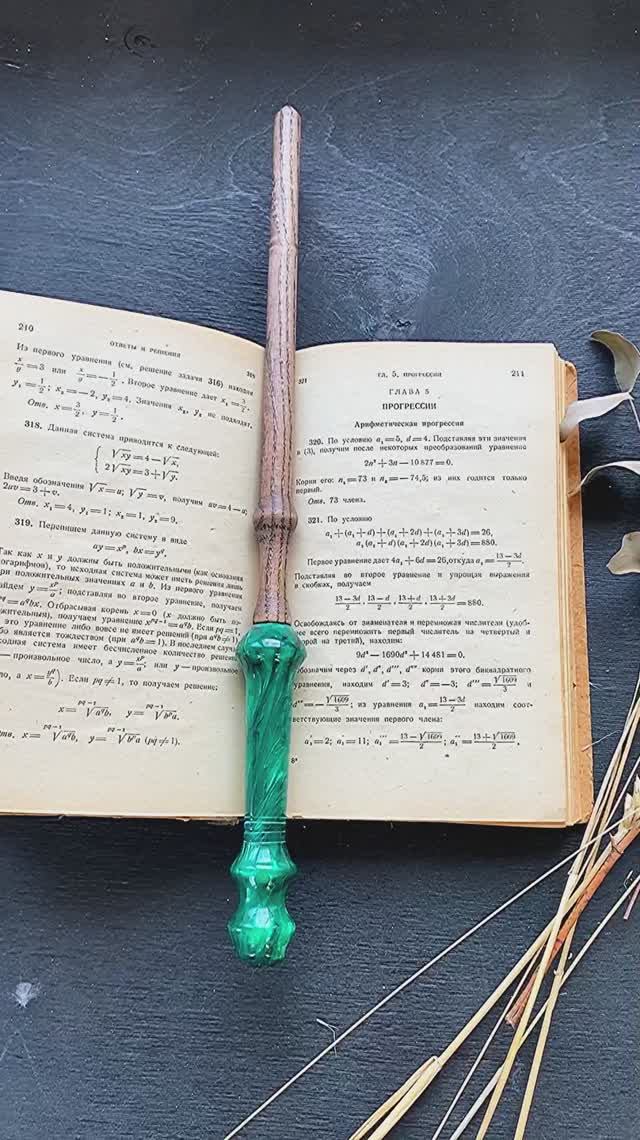 210
ОТВЕТЫ И РЕШЕНИЯ
Из первого уравнения (см. решение задачи 316) находим
x/y = 3 или x/y = — 1/2. Второе уравнение дает x₁ = 3/2,
y₁ = 1/2; x₂ = —2, y₂ = 4. Значения x₂, y₂ не подходят.
Отв. x = 3/2, y = 1/2.
318. Данная система приводится к следующей:
√xy = 4 — √x,
2√xy = 3 + √y.
Введя обозначения √x = u; √y = v, получим uv = 4 — u;
2uv = 3 + v.
Отв. x₁ = 4, y₁ = 1; x₂ = 1, y₂ = 9.
319. Перепишем данную систему в виде
ay = xᵖ, bx = y^q.
Так как x и y должны быть положительными (как основания
логарифмов), то исходная система может иметь решения лишь
при положительных значениях a и b. Из первого уравнения
найдем y = xᵖ/a; подставляя во второе уравнение, получаем
Отбрасывая корень x = 0 (x должно быть
положительным), получаем уравнение x^(pq—1) = a^q b. Если pq = 1,
то это уравнение либо вовсе не имеет решений (при a^q b ≠ 1),
либо является тождеством (при a^q b = 1). В последнем случае
исходная система имеет бесчисленное количество решений
— произвольное число, а y = xᵖ/a; или y — произвольное
Если pq ≠ 1, то получаем решение:
x = ᵖq⁻¹√(a^q b), y = ᵖq⁻¹√(bᵖa).
Отв. x = ᵖq⁻¹√(a^q b), y = ᵖq⁻¹√(bᵖa) (pq ≠ 1).
321
ГЛ. 5. ПРОГРЕССИИ
211
ГЛАВА 5
ПРОГРЕССИИ
Арифметическая прогрессия
320. По условию a₁ = 5, d = 4. Подставляя эти значения
в (3), получим после некоторых преобразований уравнение
2n² + 3n — 10 877 = 0.
Корни его: n₁ = 73 и n₂ = — 74,5; из них годится только
первый.
Отв. 73 члена.
321. По условию
a₁ + (a₁ + d) + (a₁ + 2d) + (a₁ + 3d) = 26,
a₁ (a₁ + d) (a₁ + 2d) (a₁ + 3d) = 880.
Первое уравнение дает 4a₁ + 6d = 26, откуда a₁ = (13 — 3d)/2.
Подставляя во второе уравнение и упрощая выражения
в скобках, получаем
(13 — 3d)/2 · (13 — d)/2 · (13 + d)/2 · (13 + 3d)/2 = 880.
Освобождаясь от знаменателя и перемножая числители (удоб-
нее всего перемножить первый числитель на четвертый и
второй на третий), находим:
9d⁴ — 1690d² + 14 481 = 0.
Обозначим через d′, d″, d‴, d″″ корни этого биквадратного
уравнения, находим d′ = 3; d″ = —3; d‴ = √1609/3 и
d″″ = — √1609/3; из уравнения a₁ = (13 — 3d)/2 находим соот-
ветствующие значения первого члена:
a₁′ = 2; a₁″ = 11; a₁‴ = (13 — √1609)/2; a₁″″ = (13 + √1609)/2.
8*